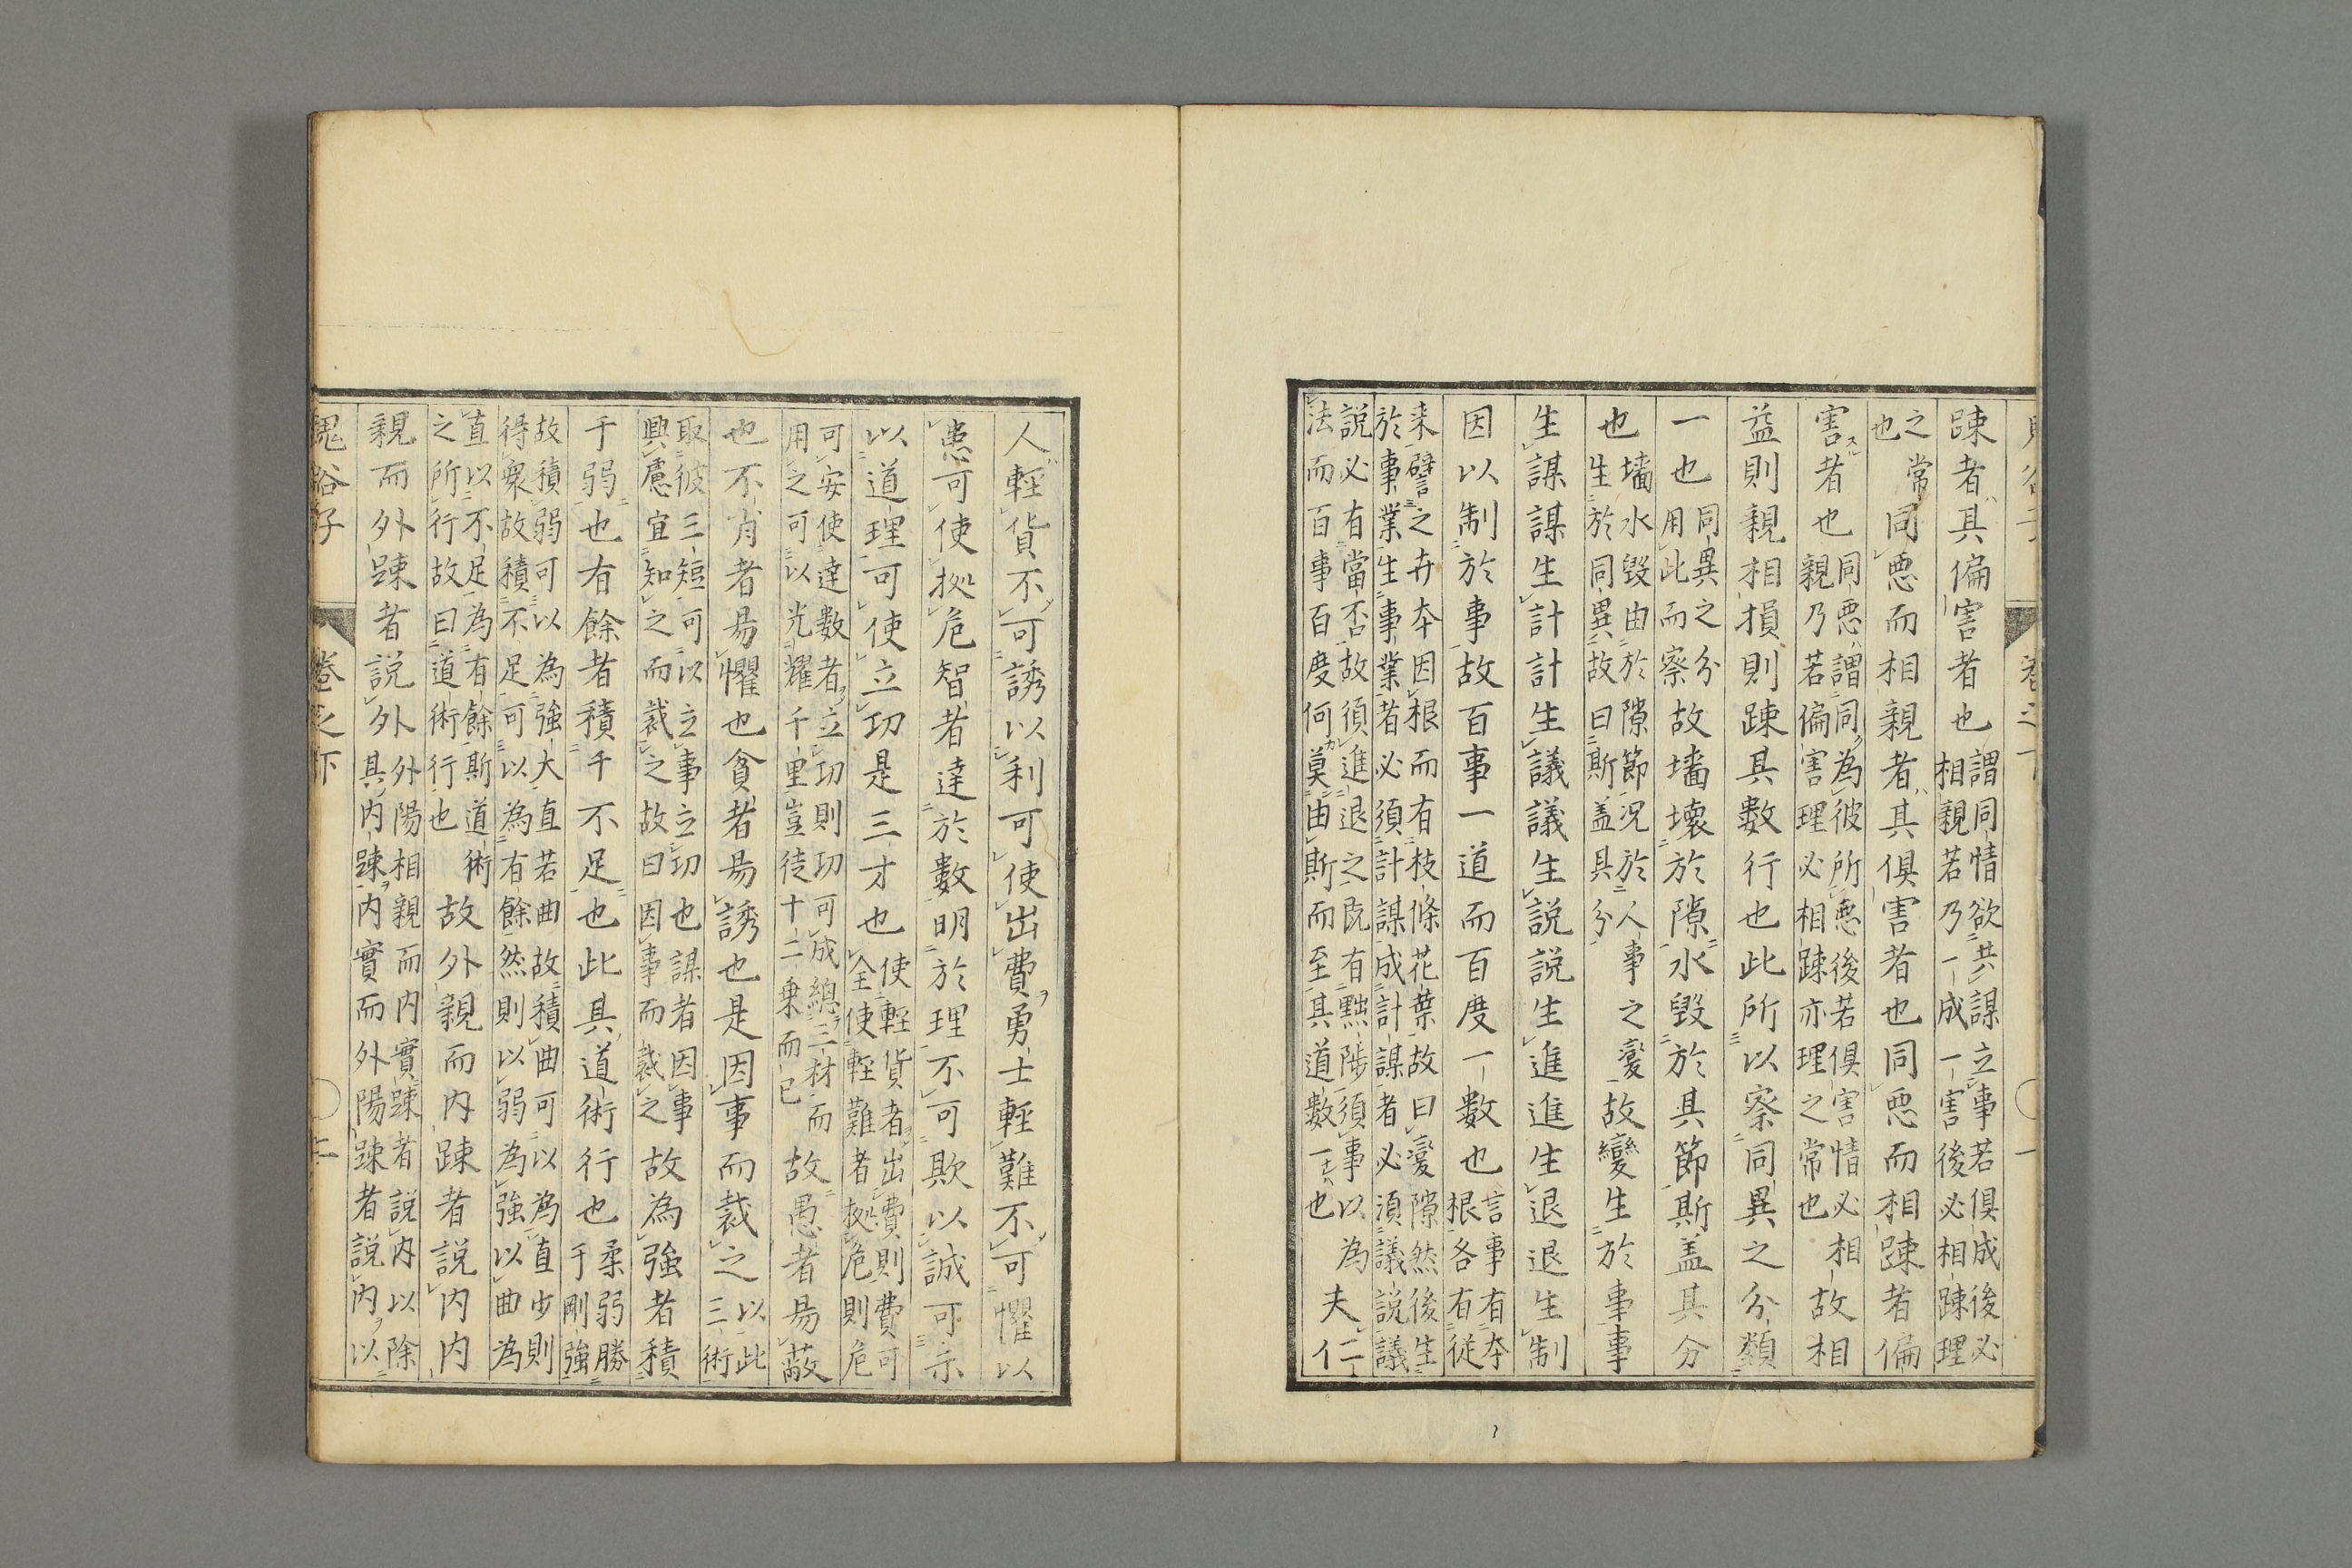 踈者其偏害者也謂同情欲共謀立事若俱成後必
相親若乃一成一害後必相踈理
之常
也同惡而相親者其俱害者也同惡而相踈者偏
害者也同惡謂同為彼所惡後若俱害情必相
親乃若偏害理必相踈亦理之常也故相
益則親相損則踈其數行也此所以察同異之分類
一也同異之分
用此而察故墻壞於隙水毀於其節斯盖其分
也墻水毀由於隙節況於人事之變
生於同異故曰斯盖其分故變生於事事
生謀謀生計計生議議生説説生進進生退退生制
因以制於事故百事一道而百度一數也言事有本
根各有從
来譬之卉本因根而有枝條花葉故曰變隙然後生
於事業生事業者必須計謀成計謀者必須議説議
説必有當否故須進退之既有黜陟須事以為
法而百事百度何莫由斯而至其道數一也夫仁
人輕貨不可誘以利可使出費勇士輕難不可懼以
患可使拠危智者達於數明於理不可欺以誠可示
以道理可使立功是三才也使輕貨者出費則費可
全使輕難者拠危則危
可安使達数者立功則功可成總三材而
用之可以光耀千里豈徒十二乗而已故愚者易蔽
也不肖者易懼也貪者易誘也是因事而裁之以此
三術
取彼三短可以立事立功也謀者因事
興慮宜知之而裁之故曰因事而裁之故為強者積
于弱也有餘者積于不足也此其道術行也柔弱勝
于剛強
故積弱可以為強大直若曲故積曲可以為直少則
得衆故積不足可以為有餘然則以弱為強以曲為
直以不足為有餘斯道術
之所行故曰道術行也故外親而内踈者説内内
親而外踈者説外外陽相親而内實踈者説内以除
其内踈内實而外陽踈者説内以
鬼谷子 卷之下 二